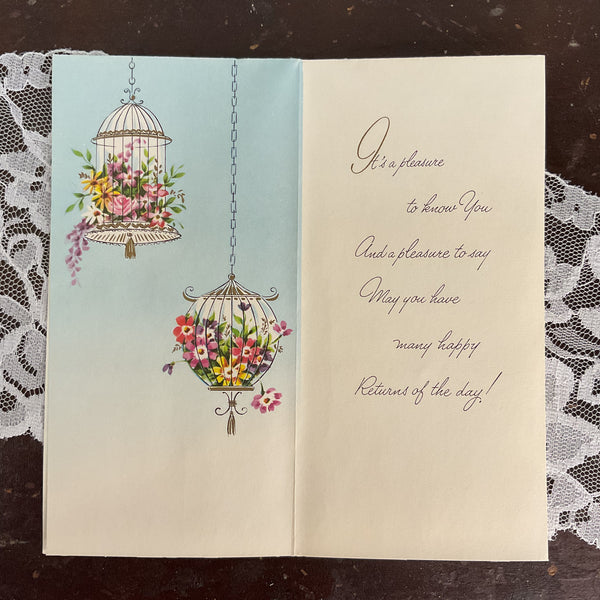 It's a pleasure
to know You
And a pleasure to say
May you have
many happy
Returns of the day!